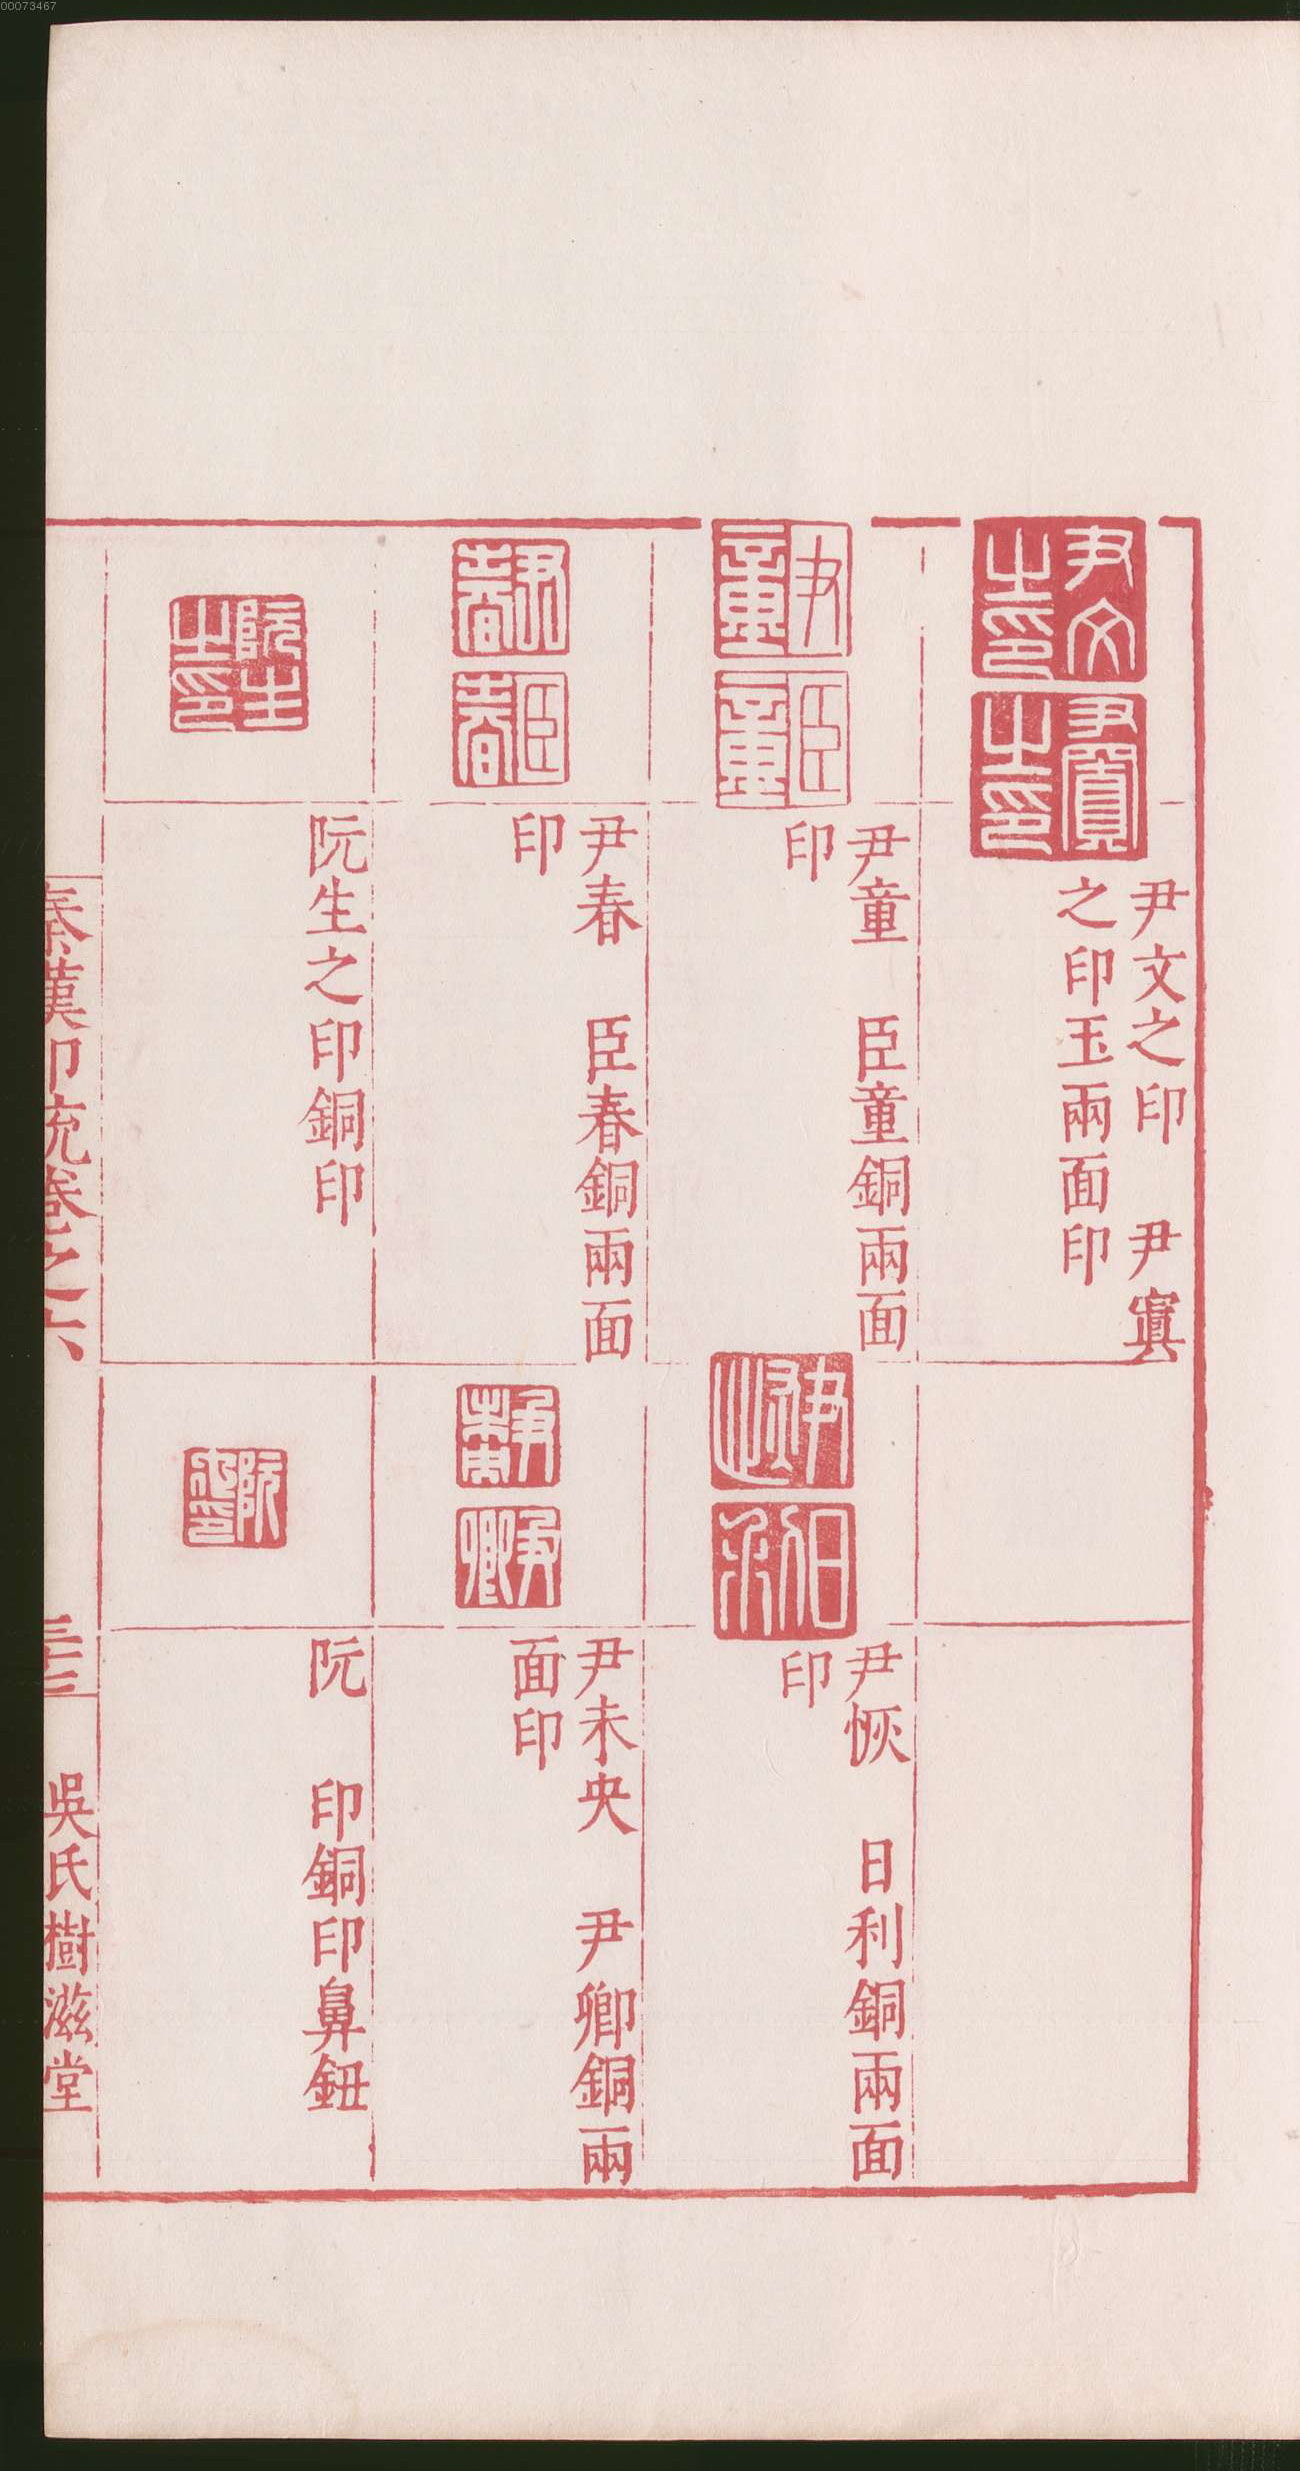 00073467
尹文之印　尹寘
之印玉兩面印
尹童　臣童銅兩面
印
尹恢　日利銅兩面
印
尹春　臣春銅兩面
印
尹未央　尹卿銅兩
面印
阮生之印銅印
阮　印銅印鼻鈕
秦漢印統卷之六
三十三
吳氏樹滋堂